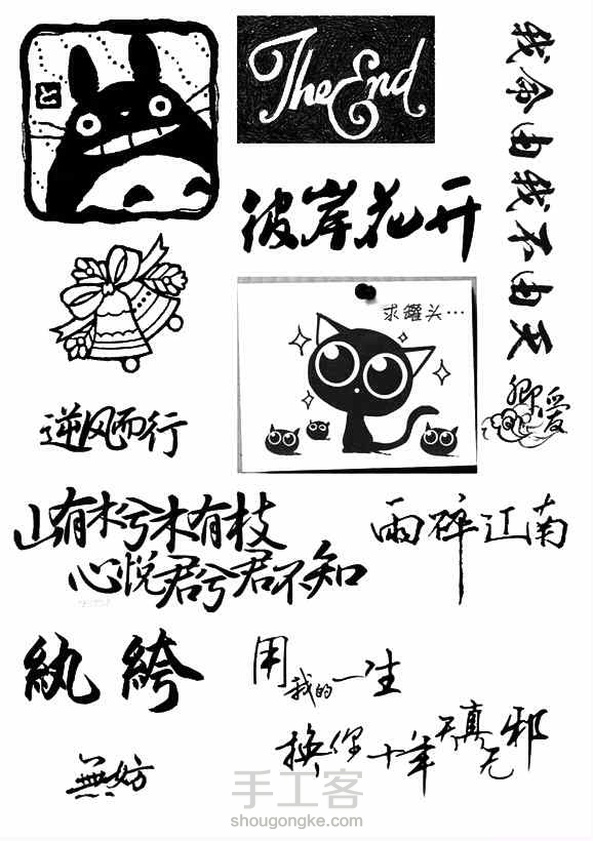 と
The End
我命由我不由天
彼岸花开
求罐头…
卿爱
逆风而行
山有木兮木有枝
心悦君兮君不知
雨碎江南
紈绔
用我的一生
换你十年天真无邪
無妨
手工客
shougongke.com